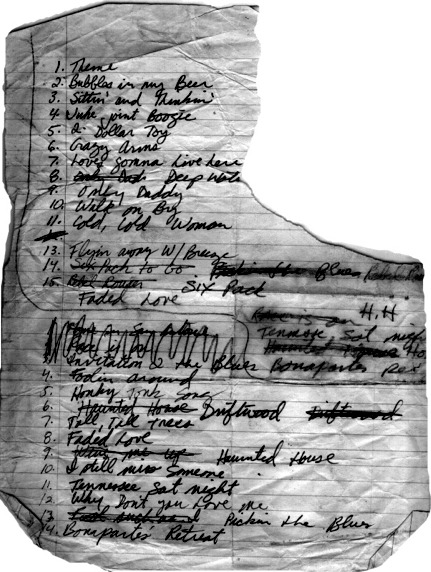 1. Theme
2. Bubbles in my Beer
3. Sittin' and Thinkin'
4. Juke joint Boogie
5. 2 Dollar Toy
6. Crazy Arms
7. Loves gonna live here
8. Deep Water
9. Daddy
10. Walk on By
11. Cold, Cold Woman
13. Flyin away W/Breeze
14. Six Pack to Go Blues
15. Six Pack
Faded Love
H.H
Tennesse Sat night
Haunted House
3. Invitation to the Blues Bonapartes Ret
4. Foolin around
5. Honky Tonk Song
6. Haunted House Driftwood Driftwood
7. Tall, Tall Trees
8. Faded Love
9. Haunted House
10. I still miss Someone
11. Tennessee Sat night
12. Why Don't you Love me
13. Pickin the Blues
14. Bonapartes Retreat